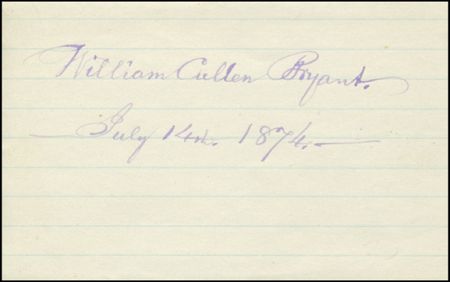 William Cullen Bryant.
— July 14th. 1874. —